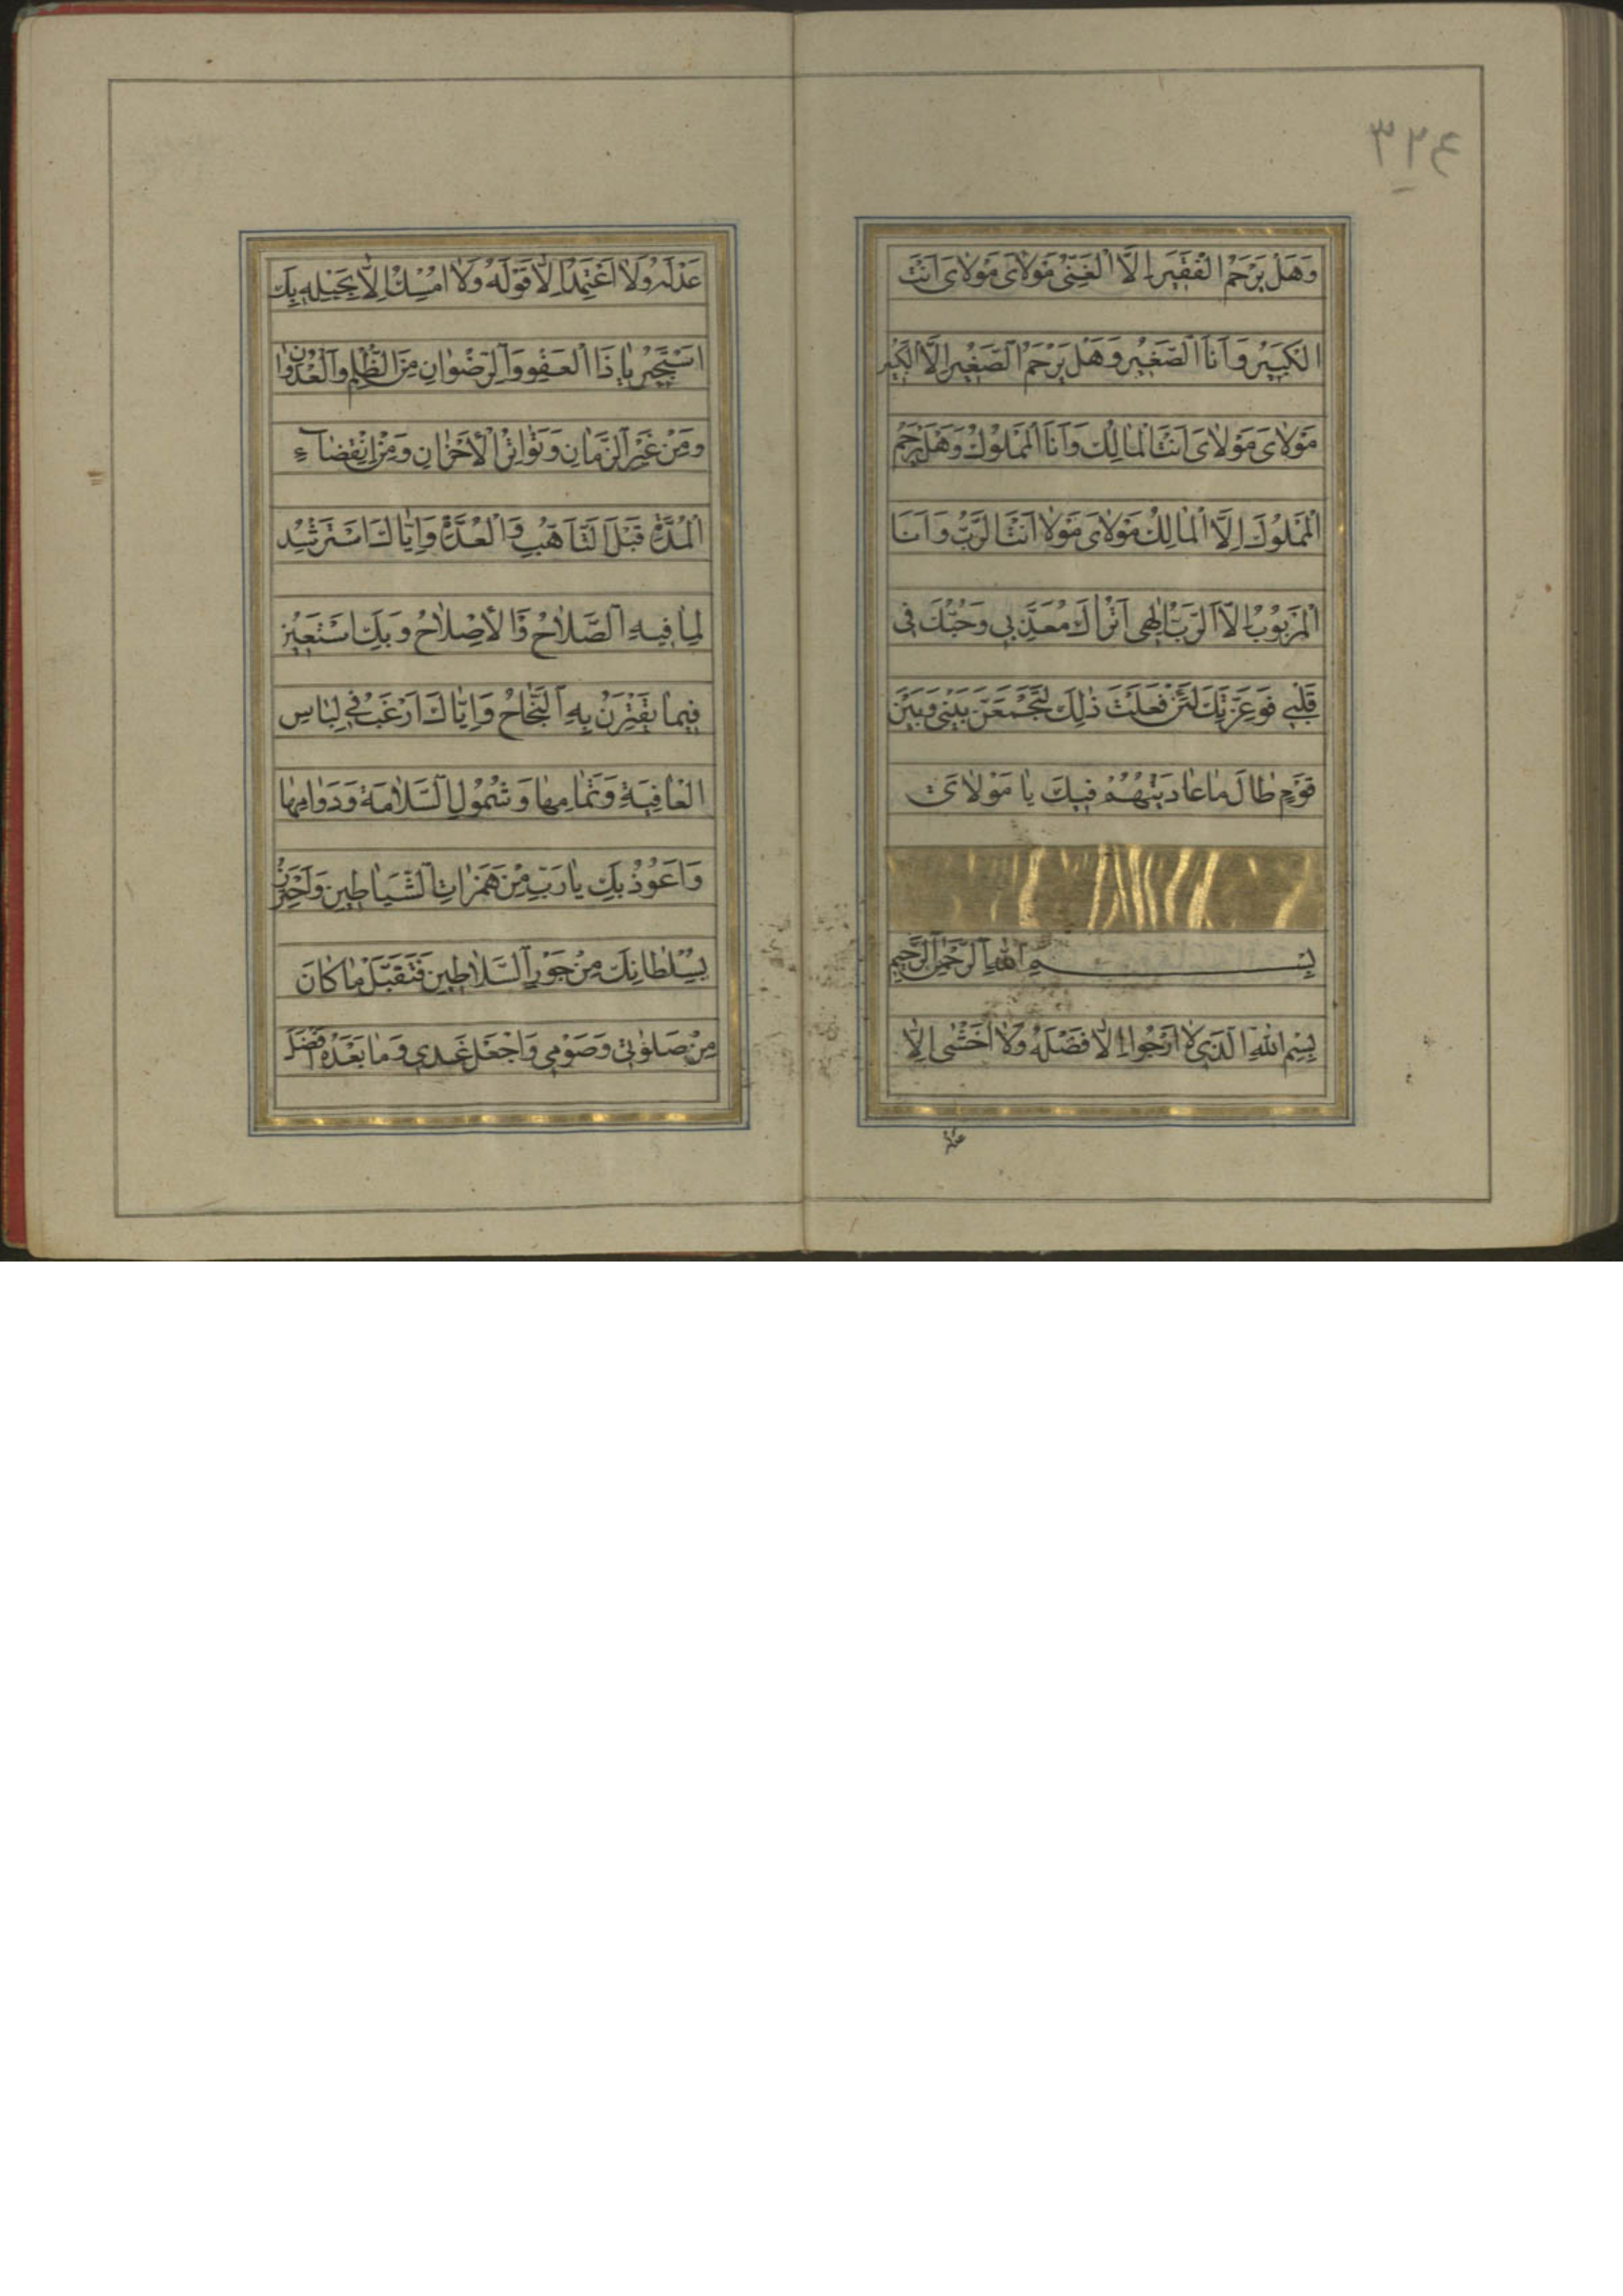 ٣٢٤
وَهَلْ يَرْحَمُ الْفَقيرَ اِلَّا الْغَنِيُّ مَوْلاىَ مَوْلاىَ اَنْتَ
الْكَبيرُ وَاَنَا الصَّغيرُ وَهَلْ يَرْحَمُ الصَّغيرَ اِلَّا الْكَبيرُ
مَوْلاىَ مَوْلاىَ اَنْتَ الْمالِكُ وَاَنَا الْمَمْلُوكُ وَهَلْ يَرْحَمُ
الْمَمْلُوكَ اِلَّا الْمالِكُ مَوْلاىَ مَوْلا اَنْتَ الرَّبُّ وَاَنَا
الْمَرْبُوبُ اِلَّا الرَّبُّ اِلهى اَتُراكَ مُعَذِّبى وَحُبُّكَ فى
قَلْبى فَوَعِزَّتِكَ لَئِنْ فَعَلْتَ ذلِكَ لَتَجْمَعَنَّ بَيْنى وَبَيْنَ
قَوْمٍ طالَ ما عادَيْتُهُمْ فيكَ يا مَوْلاىَ
بِسْمِ اللهِ الرَّحْمنِ الرَّحيمِ
بِسْمِ اللهِ الَّذى لا اَرْجُوا اِلَّا فَضْلَهُ وَلا اَخْشى اِلَّا
عَدْلَهُ وَلا اَعْتَمِدُ اِلَّا قَوْلَهُ وَلا اُمْسِكُ اِلَّا بِحَبْلِهِ بِكَ
اَسْتَجيرُ يا ذَا الْعَفْوِ وَالرِّضْوانِ مِنَ الظُّلْمِ وَالْعُدْوانِ
وَمِنْ غِيَرِ الزَّمانِ وَتَواتُرِ الْاَحْزانِ وَمِنِ انْقِضآءِ
الْمُدَّةِ قَبْلَ التَّاَهُّبِ وَالْعُدَّةِ وَاِيَّاكَ اَسْتَرْشِدُ
لِما فيهِ الصَّلاحُ وَالْاِصْلاحُ وَبِكَ اَسْتَعينُ
فيما يَقْتَرِنُ بِهِ النَّجاحُ وَاِيَّاكَ اَرْغَبُ فى لِباسِ
الْعافِيَةِ وَتَمامِها وَشُمُولِ السَّلامَةِ وَدَوامِها
وَاَعُوذُ بِكَ يا رَبِّ مِنْ هَمَزاتِ الشَّياطينِ وَاَحْتَرِزُ
بِسُلْطانِكَ مِنْ جَوْرِ السَّلاطينِ فَتَقَبَّلْ ما كانَ
مِنْ صَلوتى وَصَوْمى وَاجْعَلْ غَدى وَما بَعْدَهُ اَفْضَلَ